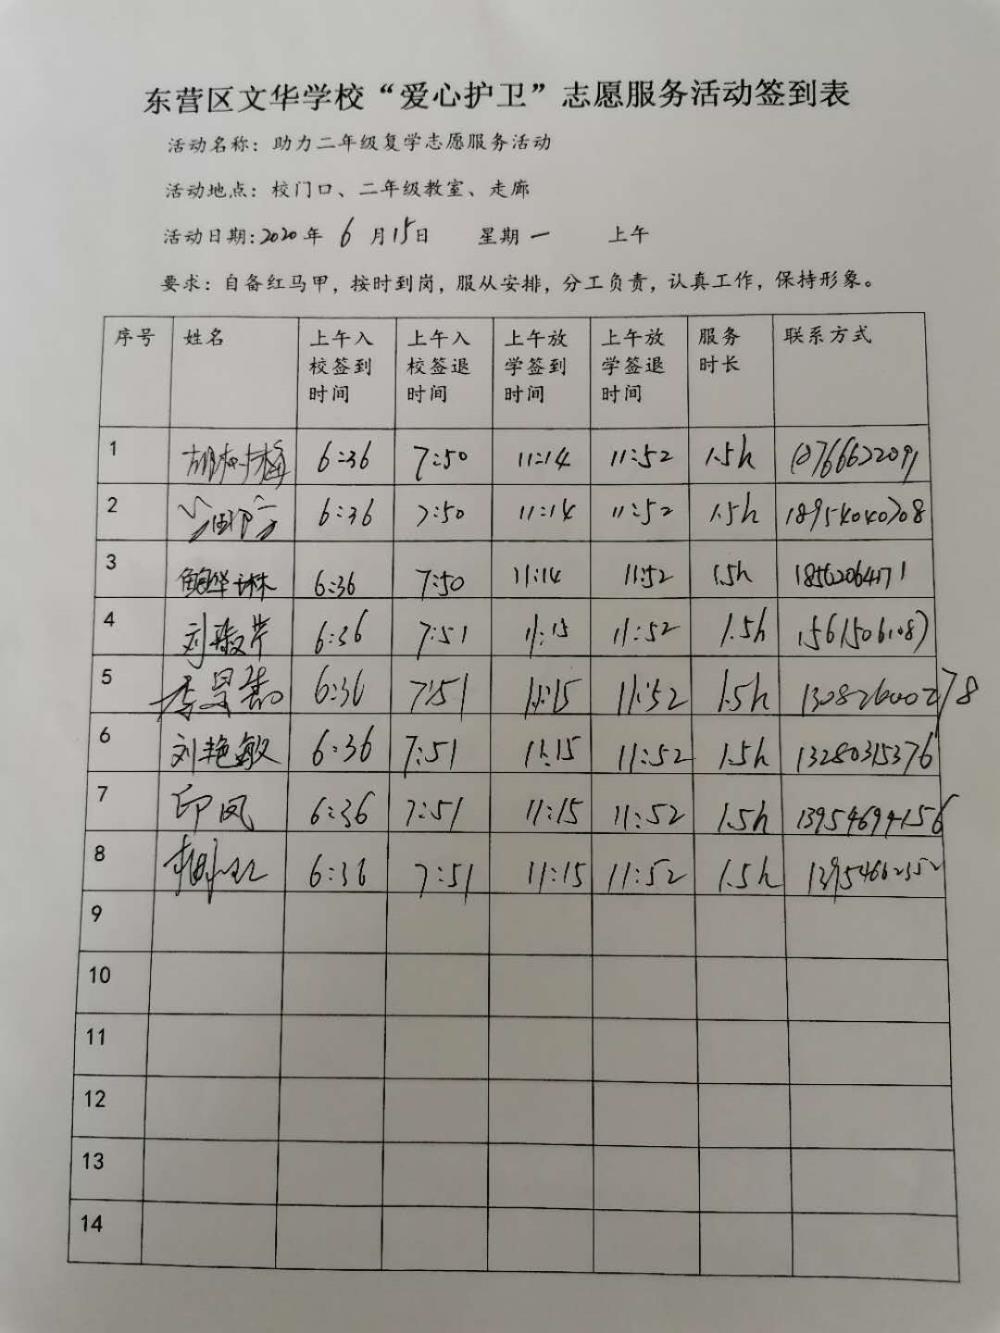 东营区文华学校“爱心护卫”志愿服务活动签到表
活动名称：助力二年级复学志愿服务活动
活动地点：校门口、二年级教室、走廊
活动日期:2020年 6 月15日 星期一 上午
要求：自备红马甲，按时到岗，服从安排，分工负责，认真工作，保持形象。
序号 姓名 上午入校签到时间 上午入校签退时间 上午放学签到时间 上午放学签退时间 服务时长 联系方式
1 6:36 7:50 11:14 11:52 1.5h 18766622091
2 6:36 7:50 11:14 11:52 1.5h 18954040708
3 6:36 7:50 11:14 11:52 1.5h 18562064171
4 6:36 7:51 11:15 11:52 1.5h 15615061087
5 6:36 7:51 11:15 11:52 1.5h
6 刘艳敏 6:36 7:51 11:15 11:52 1.5h 13280315376
7 印凤 6:36 7:51 11:15 11:52 1.5h 13954694156
8 6:36 7:51 11:15 11:52 1.5h
9
10
11
12
13
14